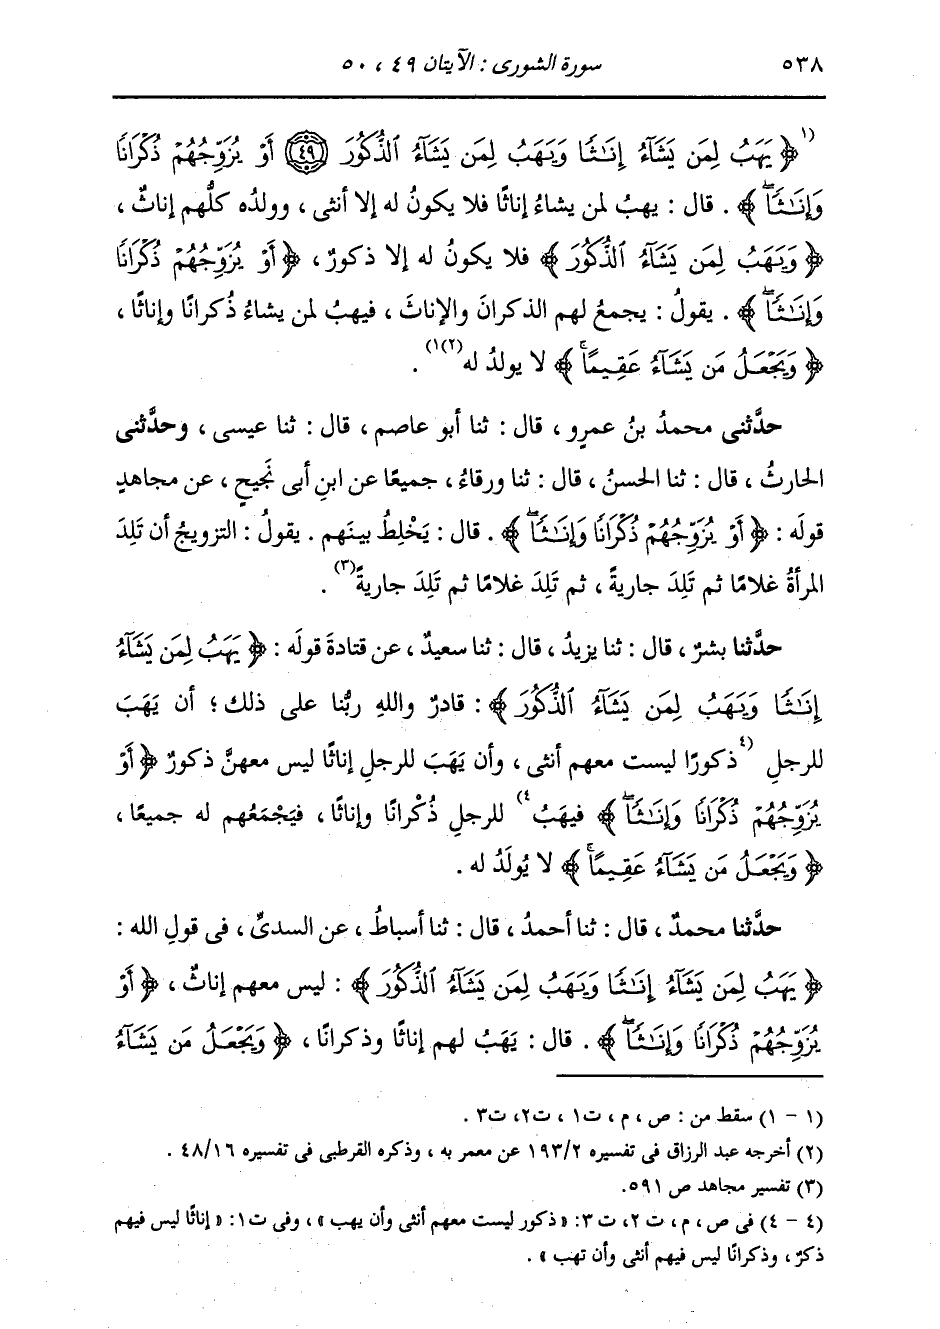 ٥٣٨ سورة الشورى : الآيتان ٤٩ ، ٥٠
(١﴿ يَهَبُ لِمَن يَشَآءُ إِنَـٰثًا وَيَهَبُ لِمَن يَشَآءُ ٱلذُّكُورَ ﴿٤٩﴾ أَوْ يُزَوِّجُهُمْ ذُكْرَانًا
وَإِنَـٰثًاۖ ﴾ . قال : يهبُ لمن يشاءُ إناثًا فلا يكونُ له إلا أنثى ، وولدُه كلُّهم إناثٌ ،
﴿ وَيَهَبُ لِمَن يَشَآءُ ٱلذُّكُورَ ﴾ فلا يكونُ له إلا ذكورٌ ، ﴿ أَوْ يُزَوِّجُهُمْ ذُكْرَانًا
وَإِنَـٰثًاۖ ﴾ . يقولُ : يجمعُ لهم الذكرانَ والإناثَ ، فيهبُ لمن يشاءُ ذُكرانًا وإناثًا ،
﴿ وَيَجْعَلُ مَن يَشَآءُ عَقِيمًاۚ ﴾ لا يولدُ له(٢)١) .
حدَّثنى محمدُ بنُ عمرٍو ، قال : ثنا أبو عاصم ، قال : ثنا عيسى ، وحدَّثنى
الحارثُ ، قال : ثنا الحسنُ ، قال : ثنا ورقاءُ ، جميعًا عن ابنِ أبى نَجيحٍ ، عن مجاهدٍ
قولَه : ﴿ أَوْ يُزَوِّجُهُمْ ذُكْرَانًا وَإِنَـٰثًاۖ ﴾ . قال : يَخْلِطُ بينَهم . يقولُ : التزويجُ أن تَلِدَ
المرأةُ غلامًا ثم تَلِدَ جاريةً ، ثم تَلِدَ غلامًا ثم تَلِدَ جاريةً(٣) .
حدَّثنا بشرٌ ، قال : ثنا يزيدُ ، قال : ثنا سعيدٌ ، عن قتادةَ قولَه : ﴿ يَهَبُ لِمَن يَشَآءُ
إِنَـٰثًا وَيَهَبُ لِمَن يَشَآءُ ٱلذُّكُورَ ﴾ : قادرٌ واللهِ ربُّنا على ذلك ؛ أن يَهَبَ
للرجلِ (٤ذكورًا ليست معهم أنثى ، وأن يَهَبَ للرجلِ إناثًا ليس معهنَّ ذكورٌ ﴿ أَوْ
يُزَوِّجُهُمْ ذُكْرَانًا وَإِنَـٰثًاۖ ﴾ فيهَبُ٤) للرجلِ ذُكْرانًا وإناثًا ، فيَجْمَعُهم له جميعًا ،
﴿ وَيَجْعَلُ مَن يَشَآءُ عَقِيمًاۚ ﴾ لا يُولَدُ له .
حدَّثنا محمدٌ ، قال : ثنا أحمدُ ، قال : ثنا أسباطُ ، عن السدىِّ ، فى قولِ الله :
﴿ يَهَبُ لِمَن يَشَآءُ إِنَـٰثًا وَيَهَبُ لِمَن يَشَآءُ ٱلذُّكُورَ ﴾ : ليس معهم إناثٌ ، ﴿ أَوْ
يُزَوِّجُهُمْ ذُكْرَانًا وَإِنَـٰثًاۖ ﴾ . قال : يَهَبُ لهم إناثًا وذكرانًا ، ﴿ وَيَجْعَلُ مَن يَشَآءُ
(١ - ١) سقط من : ص ، م ، ت١ ، ت٢، ت٣ .
(٢) أخرجه عبد الرزاق فى تفسيره ١٩٣/٢ عن معمر به ، وذكره القرطبى فى تفسيره ٤٨/١٦ .
(٣) تفسير مجاهد ص ٥٩١.
(٤ - ٤) فى ص ، م ، ت ٢، ت ٣: « ذكور ليست معهم أنثى وأن يهب » ، وفى ت١: « إناثًا ليس فيهم
ذكرٌ ، وذكرانًا ليس فيهم أنثى وأن تهب » .